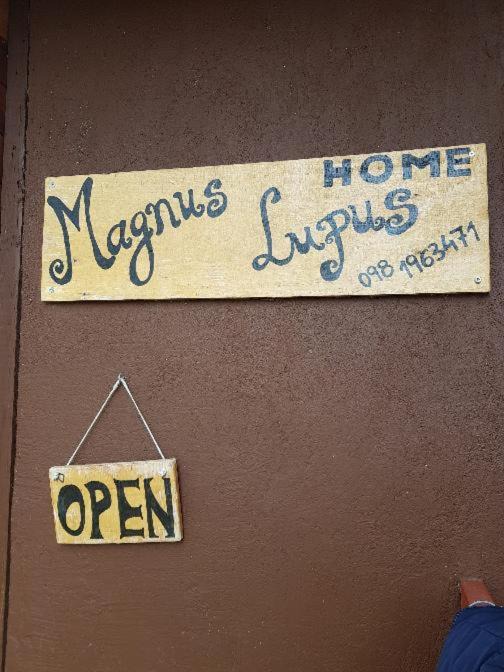 HOME
Magnus Lupus
098 1963471
OPEN